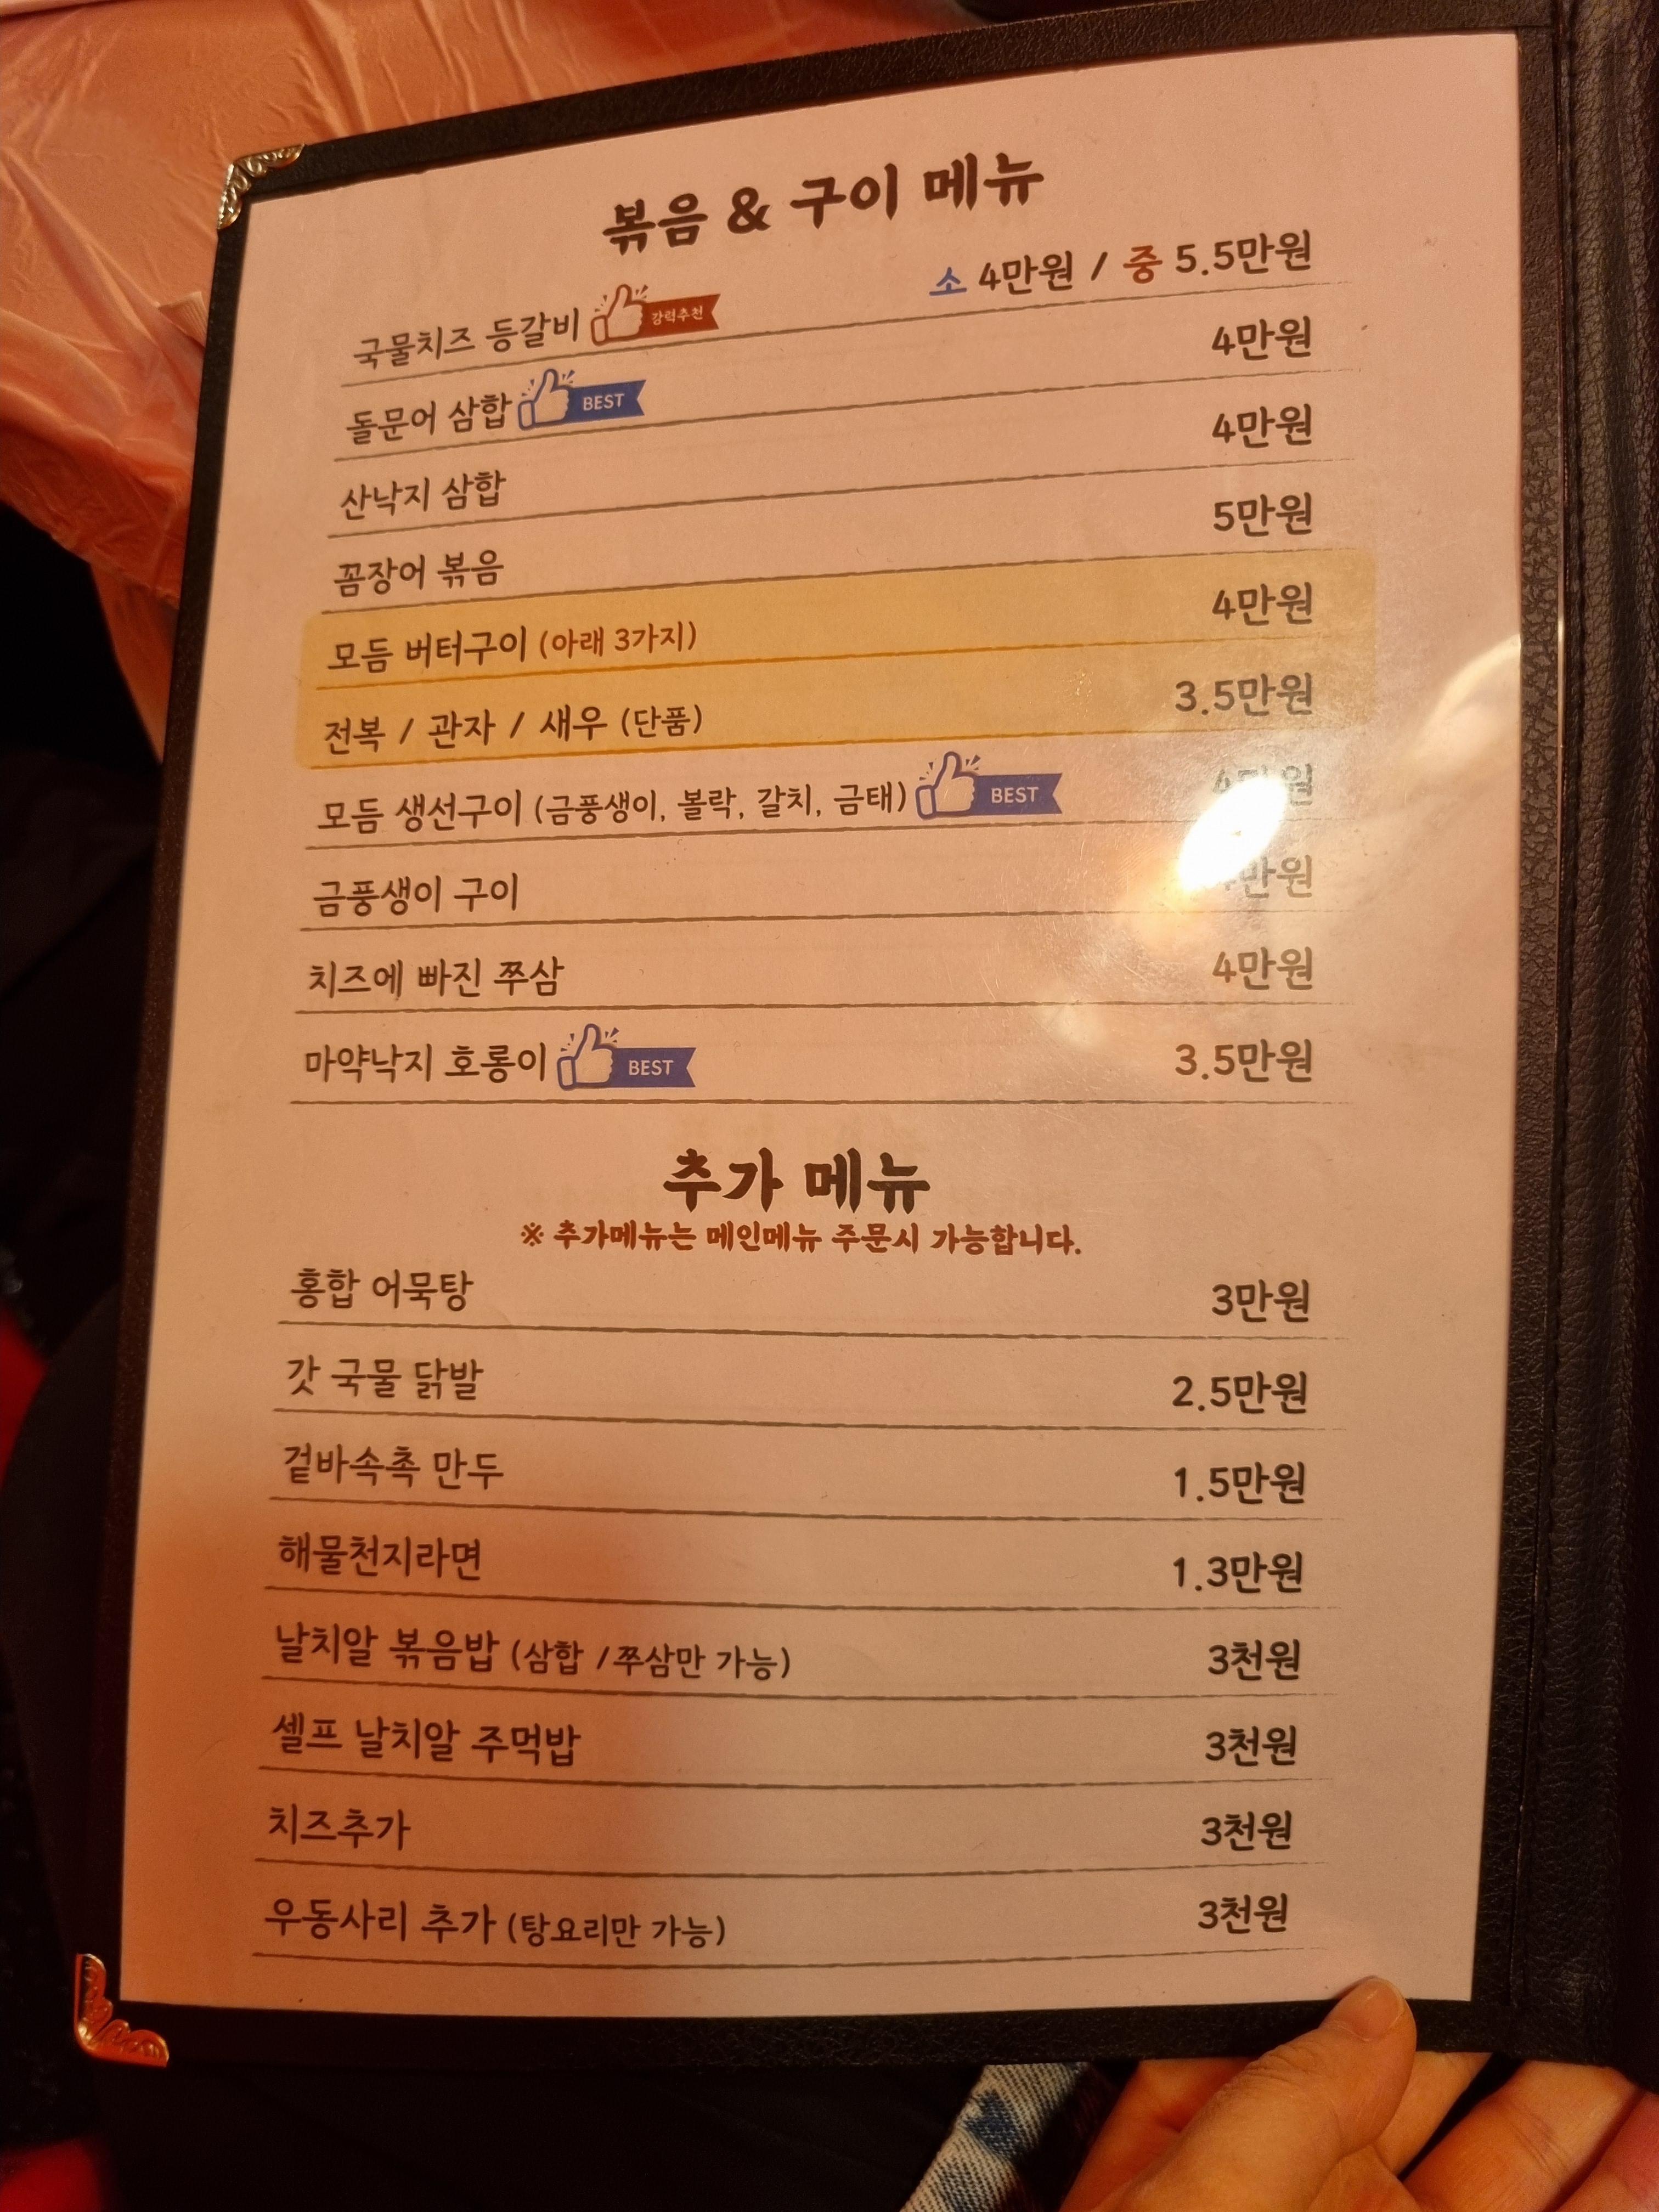 볶음 & 구이 메뉴
국물치즈 등갈비 강력추천 소 4만원 / 중 5.5만원
돌문어 삼합 BEST 4만원
산낙지 삼합 4만원
꼼장어 볶음 5만원
모듬 버터구이 (아래 3가지) 4만원
전복 / 관자 / 새우 (단품) 3.5만원
모듬 생선구이 (금풍생이, 볼락, 갈치, 금태) BEST
금풍생이 구이
치즈에 빠진 쭈삼 4만원
마약낙지 호롱이 BEST 3.5만원
추가 메뉴
※ 추가메뉴는 메인메뉴 주문시 가능합니다.
홍합 어묵탕 3만원
갓 국물 닭발 2.5만원
겉바속촉 만두 1.5만원
해물천지라면 1.3만원
날치알 볶음밥 (삼합 /쭈삼만 가능) 3천원
셀프 날치알 주먹밥 3천원
치즈추가 3천원
우동사리 추가 (탕요리만 가능) 3천원